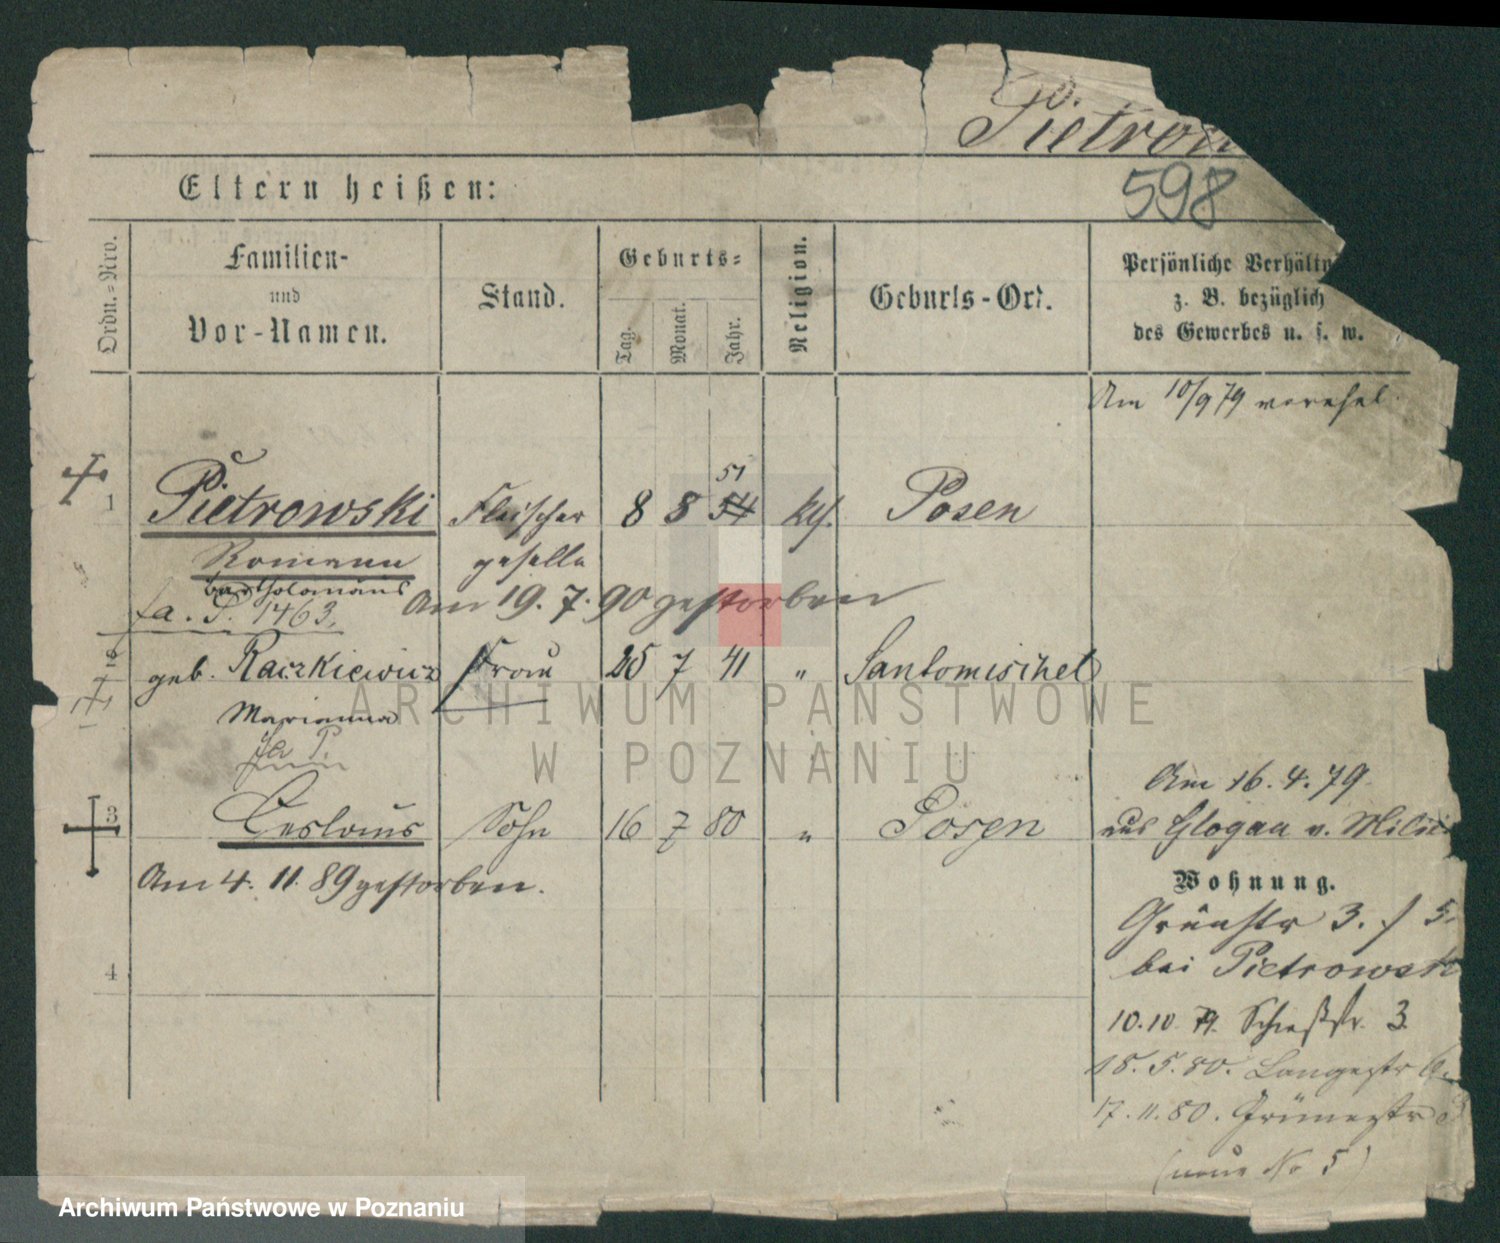 Pietrow
598
Eltern heißen:
Ordn.-Nro.
Familien-
und
Vor-Namen.
Stand.
Geburts-
Tag.
Monat.
Jahr.
Religion.
Geburts-Ort.
Persönliche Verhältn
z. B. bezüglich
des Gewerbes u. s. w.
Am 10/9 79 verehel.
51
1 Pietrowski Fleischer 8 8 54 kth. Posen
Romann geselle
Bartholomäus
fa. P. 1463. Am 19. 7. 90 gestorben
geb. Raczkiewicz Frau 25 7 41 " Santomischel
Marianna
fa P.
Am 16.4.79
3 Ceslaus Sohn 16 7 80 " Posen
aus Glogau v. Militä
Am 4. 11. 89 gestorben.
Wohnung.
Grünstr 3. / 5.
bei Pietrowsk
4
10.10 79. Schießstr. 3
18.5.80. Langestr
17.11.80. Grünestr 3
(neue No 5)
ARCHIWUM PAŃSTWOWE
W POZNANIU
Archiwum Państwowe w Poznaniu